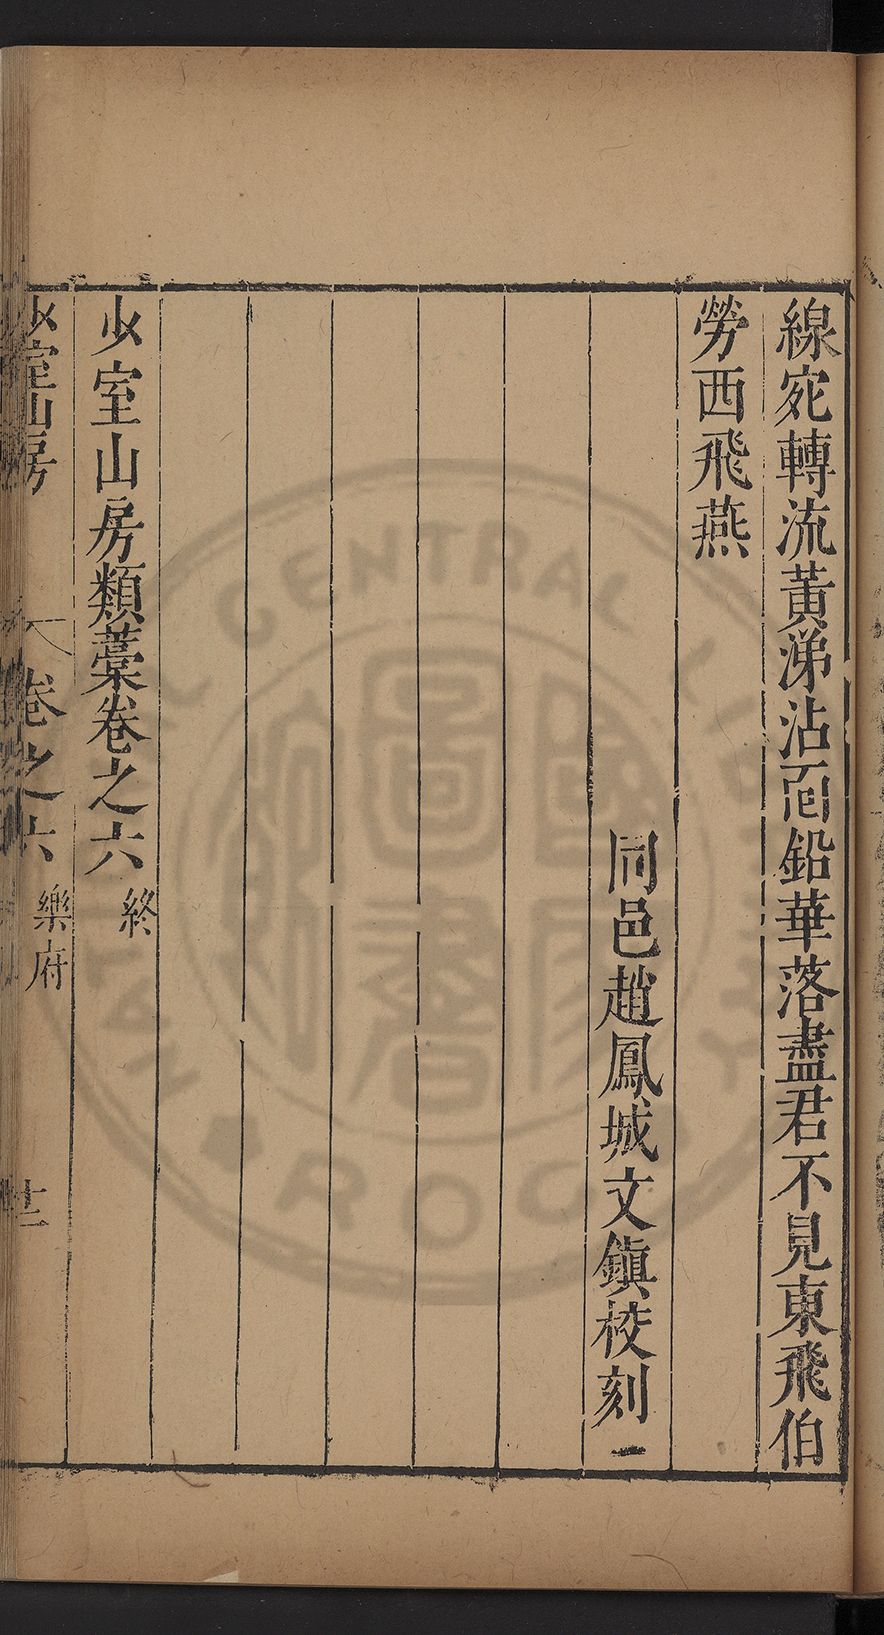 線宛轉流黃涕沾面鉛華落盡君不見東飛伯
勞西飛燕
同邑趙鳳城文鎮校刻
少室山房類藁卷之六 終
少室山房 卷之六 樂府
CENTRAL
ROC